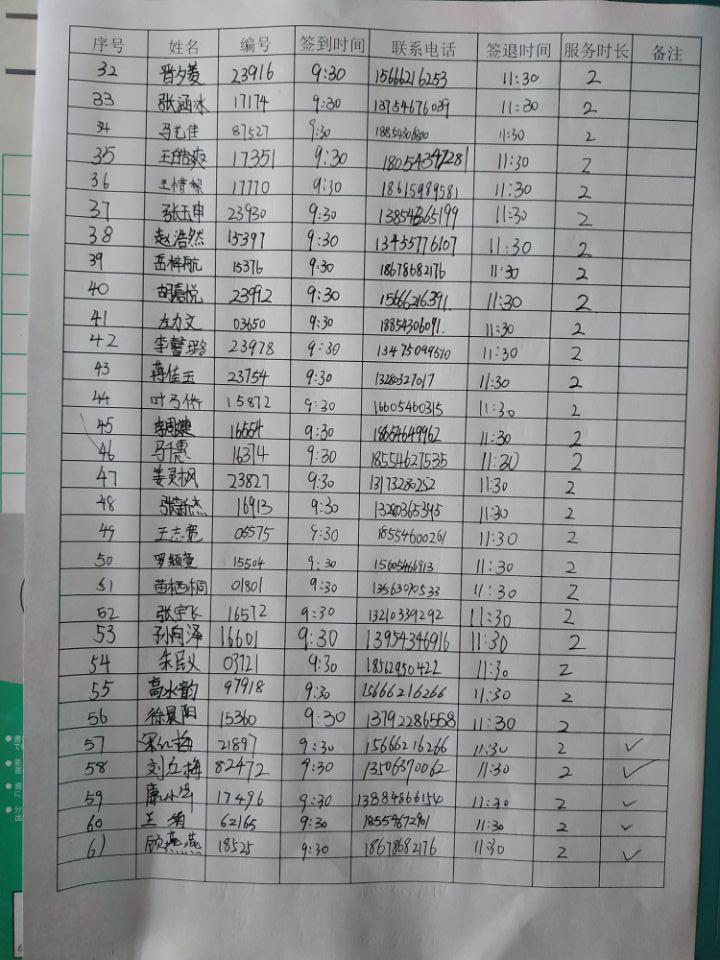 序号 姓名 编号 签到时间 联系电话 签退时间 服务时长 备注
32 晋夕菱 23916 9:30 15666216253 11:30 2
33 张涵冰 17174 9:30 13754676039 11:30 2
34 马艺佳 87527 9:30 11:30 2
35 王皓爽 17351 9:30 18054347281 11:30 2
36 17770 9:30 18615989581 11:30 2
37 张玉申 23930 9:30 13854365199 11:30 2
38 赵浩然 15397 9:30 13455776107 11:30 2
39 岳梓航 15376 9:30 18678682176 11:30 2
40 胡嘉悦 23992 9:30 15666216391. 11:30 2
41 左力文 03650 9:30 18854306091. 11:30 2
42 李馨璐 23978 9:30 11:30 2
43 蒋佳玉 23754 9:30 13280327017 11:30 2
44 15872 9:30 16605460315 11:30 2
45 16554 9:30 18654649962 11:30 2
46 马千惠 16374 9:30 18554627535 11:30 2
47 姜灵枫 23827 9:30 13173280252 11:30 2
48 张新杰 16913 9:30 11:30 2
49 王志宽 05575 9:30 18554600261 11:30 2
50 罗颖萱 15504 9:30 11:30 2
51 苗栖桐 01801 9:30 13563090533 11:30 2
52 张宇飞 16572 9:30 13210339292 11:30 2
53 孙向泽 16601 9:30 13954346916 11:30 2
54 朱臣义 03721 9:30 18562950422 11:30 2
55 高水韵 97918 9:30 15666216266 11:30 2
56 徐晨阳 15360 9:30 13792286558 11:30 2
57 宋红梅 21897 9:30 15666216266 11:30 2 ✓
58 刘立梅 82472 9:30 13506370062 11:30 2 ✓
59 17496 9:30 11:30 2 ✓
60 62165 9:30 18554672901 11:30 2 ✓
61 顾燕燕 18525 9:30 18678682176 11:30 2 ✓